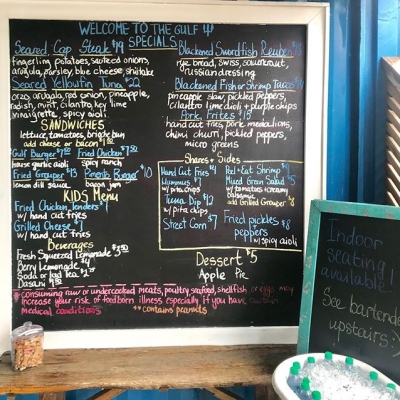 WELCOME TO THE GULF
SPECIALS
Seared Cap Steak $19
fingerling potatoes, sauteed onions,
arugula, parsley, blue cheese, shiitake
Seared Yellowfin Tuna $22
orzo, arugula, red onion, pineapple,
radish, mint, cilantro, key lime
vinaigrette, spicy aioli
SANDWICHES
lettuce, tomatoes, bun
add cheese or bacon
Gulf Burger
house garlic aioli
Fried Chicken
spicy ranch
Fried Grouper $13
lemon dill sauce
Pimento Burger $10
bacon jam
KIDS Menu
Fried Chicken Tenders
w/ hand cut fries
Grilled Cheese
w/ hand cut fries
Beverages
Fresh Squeezed Lemonade
Berry Lemonade $4
Soda or Iced Tea
Dasani
Blackened Swordfish Reuben
rye bread, swiss, sauerkraut,
russian dressing
Blackened Fish or Shrimp Tacos
pineapple slaw, pickled peppers,
cilantro lime aioli + purple chips
Pork Frites $15
hand cut fries, pork medallions,
chimi churri, pickled peppers,
micro greens
Shares + Sides
Hand Cut Fries $4
Hummus
w/ pita chips
Tuna Dip $12
w/ pita chips
Street Corn $7
Shrimp
Mixed Green Salad
w/ tomatoes creamy
balsamic
add Grilled Grouper
Fried pickles $8
+ peppers
w/ spicy aioli
Dessert $5
Apple Pie
* consuming raw or undercooked meats, poultry, seafood, shellfish or eggs may
increase your risk of foodborn illness especially if you have certain
medical conditions
** contains peanuts
Indoor
seating
available!
See bartender
upstairs :)